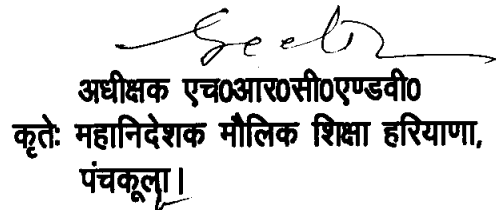 Geeta
अधीक्षक एच0आर0सी0एण्डवी0
कृतेः महानिदेशक मौलिक शिक्षा हरियाणा,
पंचकूला।